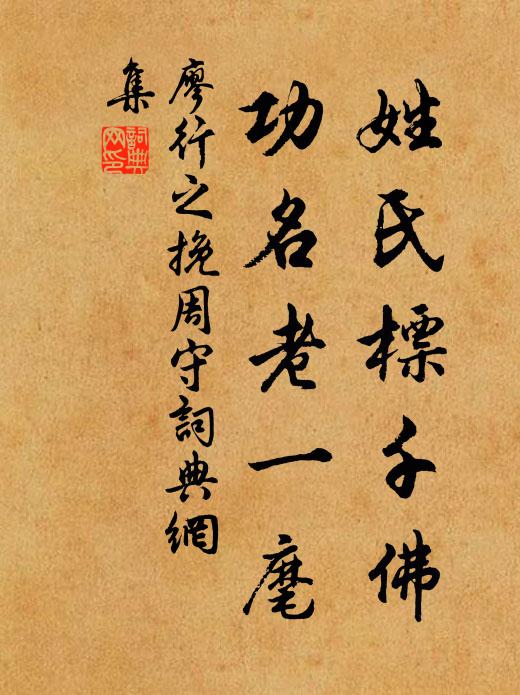 姓氏標千佛
功名老一麾
廖行之挽周守詞典網
集
詞典網印